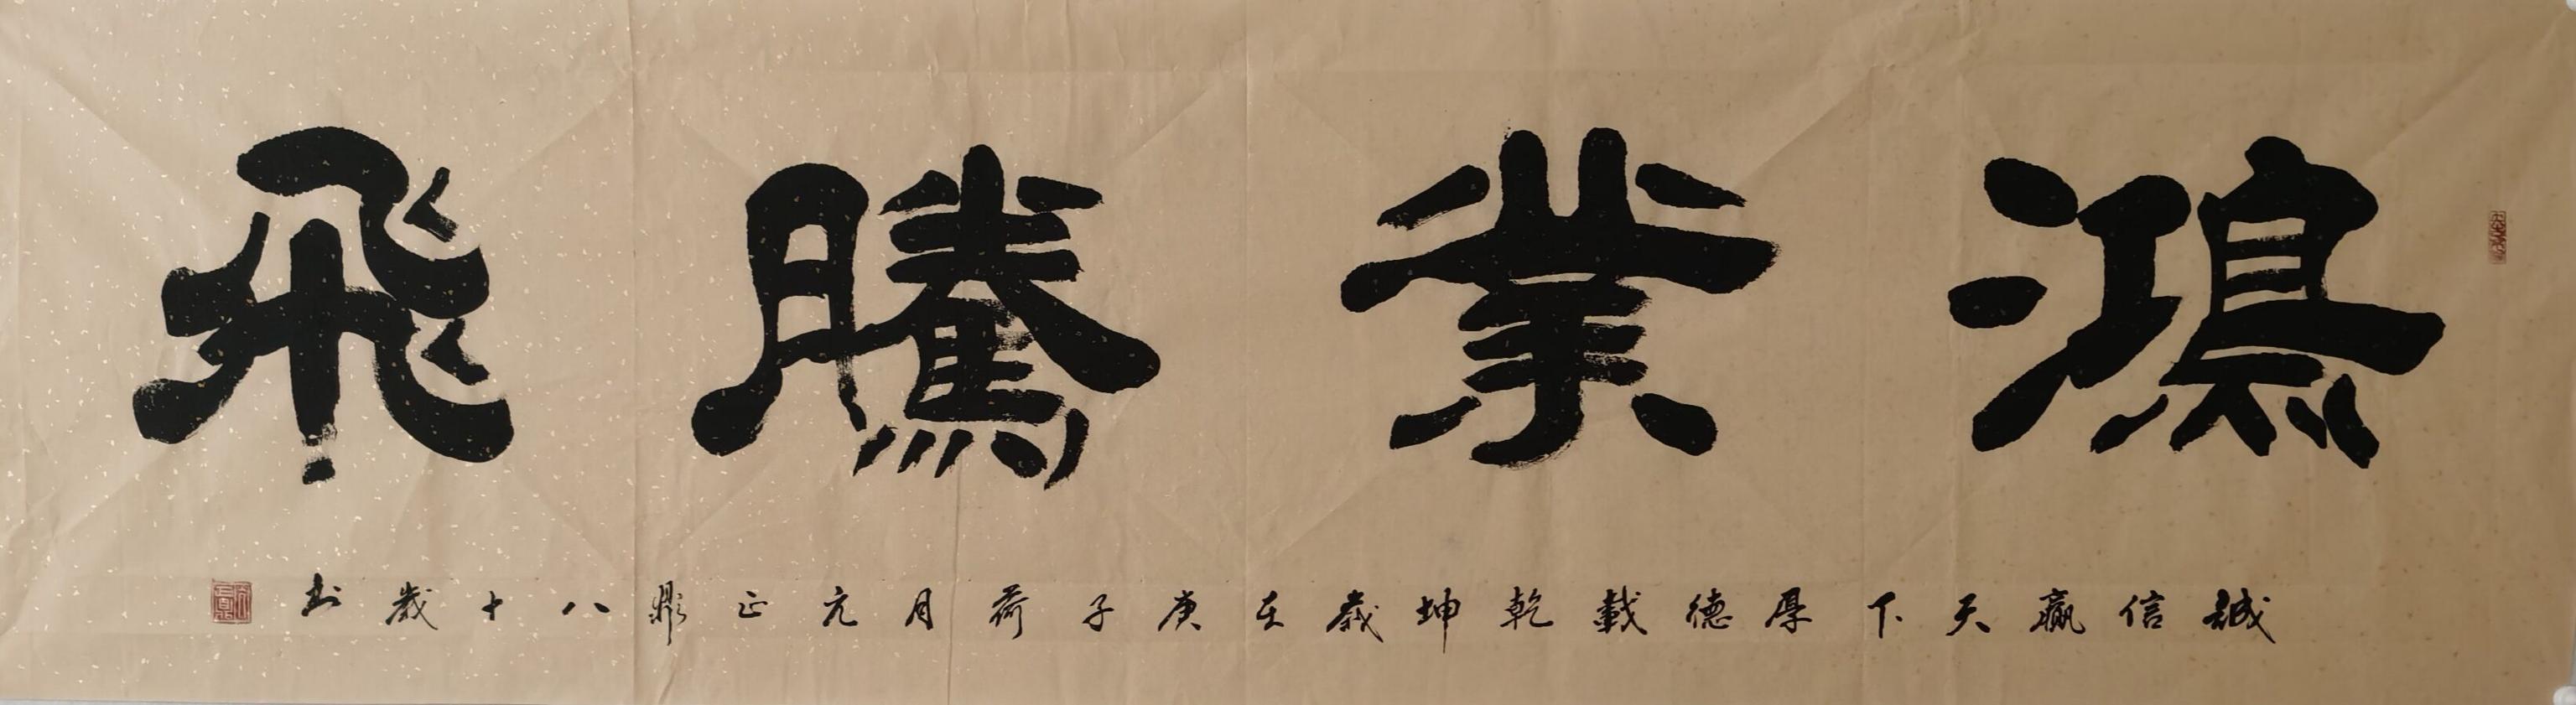 鴻業騰飛
誠信贏天下厚德載乾坤歲在庚子荷月元正鼎八十歲书